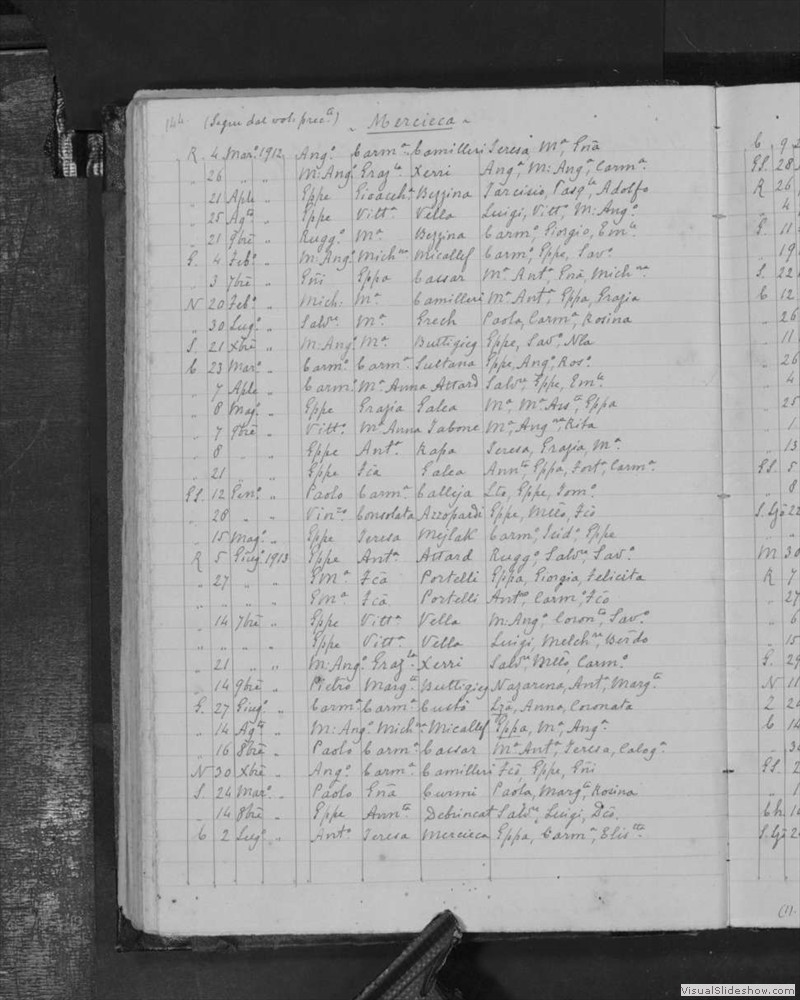 144. (Segue dal vol: prec.te) Mercieca
R 4 Mar.o 1912 Ang.o Carm.a Camilleri Teresa, M.a Gnã
„ 26 „ „ M: Ang.o Graz.la Xerri Ang.a M: Ang.a, Carm.a
„ 21 Aple „ Gppe Gioacch.a Bezzina Tarcisio, Pasq.le, Adolfo
„ 25 Ag.to „ Gppe Vitt.a Vella Luigi, Vitt.a, M: Ang.o
„ 21 9bre „ Rugg.o M.a Bezzina Carm.o, Giorgio, Em.le
G. 4 Feb.o „ M: Ang.o Mich.na Micallef Carm.o, Gppe, Sav.o
„ 3 7bre „ Gñi Gppa Cassar M.a Ant.a, Gnã, Mich.na
N 20 Feb.o „ Mich: M.a Camilleri M.a Ant.a, Gppa, Grazia
„ 30 Lug.o „ Salv.re M.a Grech Paola, Carm.a, Rosina
S. 21 Xbre „ M: Ang.o M.a Buttigieg Gppe, Sav.o, Nla
C 23 Mar.o „ Carm.o Carm.a Sultana Gppe, Ang.o, Ros.o
„ 7 Aple „ Carm.o M.a Anna Attard Salv.re, Gppe, Em.le
„ 8 Mag.o „ Gppe Grazia Galea M.a, M.a Ass.ta, Gppa
„ 7 9bre „ Vitt.o M.a Anna Tabone M.a, Ang.na, Rita
„ 8 „ „ Gppe Ant.a Rapa Teresa, Grazia, M.a
„ 21 „ „ Gppe Fcã Galea Ann.ta, Gppa, Fort.a, Carm.a
GS. 12 Gen.o „ Paolo Carm.a Calleja Lto, Gppe, Tom.o
„ 28 „ „ Vin.zo Consolata Azzopardi Gppe, Mello, Fcõ
„ 15 Mag.o „ Gppe Teresa Mejlak Carm.o, Gppe
R 5 Giug.o 1913 Gppe Ant.a Attard Rugg.o, Salv.re, Sav.o
„ 27 „ „ GM.a Fcã Portelli Gppa, Giorgia, Felicita
„ „ „ „ GM.a Fcã Portelli Ant.o, Carm.o, Fcõ
„ 14 7bre „ Gppe Vitt.a Vella M: Ang.o, Coron.to, Sav.o
„ „ „ „ Gppe Vitt.a Vella Luigi, Melch.re, Berdo
„ 21 „ „ M: Ang.o Graz.la Xerri Salv.re, Mello, Carm.o
„ 14 9bre „ Pietro Marg.ta Buttigieg Nazarena, Ant.a, Marg.ta
G. 27 Giug.o „ Carm.o Carm.a Custò Lzã, Anna, Coronata
„ 14 Ag.to „ M: Ang.o Mich.na Micallef Gppa, M.a, Ang.a
„ 16 8bre „ Paolo Carm.a Cassar M.a Ant.a, Teresa, Calog.a
N 30 Xbre „ Ang.o Carm.a Camilleri Fcõ, Gppe, Gñi
S. 24 Mar.o „ Paolo Gnã Curmi Paola, Marg.ta, Rosina
„ 14 8bre „ Gppe Ann.ta Debrincat Salv.re, Luigi, Dcõ
C 2 Lug.o „ Ant.o Teresa Mercieca Gppa, Carm.a, Elis.tta
C 9
GS. 28
R 26
„ 4
G. 11
„ 19
S. 22
C 12
„ 26
„ 11
„ 26
„ 4
„ 25
„ 1
„ 13
GS. 5
„ 8
S.Lzõ 22
M 30
R 7
„ 27
„ 6
„ 15
G. 29
N 11
Z 24
C 14
„ 30
GS. 2
„ 1
Ch. 1
S.Lzõ 2
VisualSlideshow.com